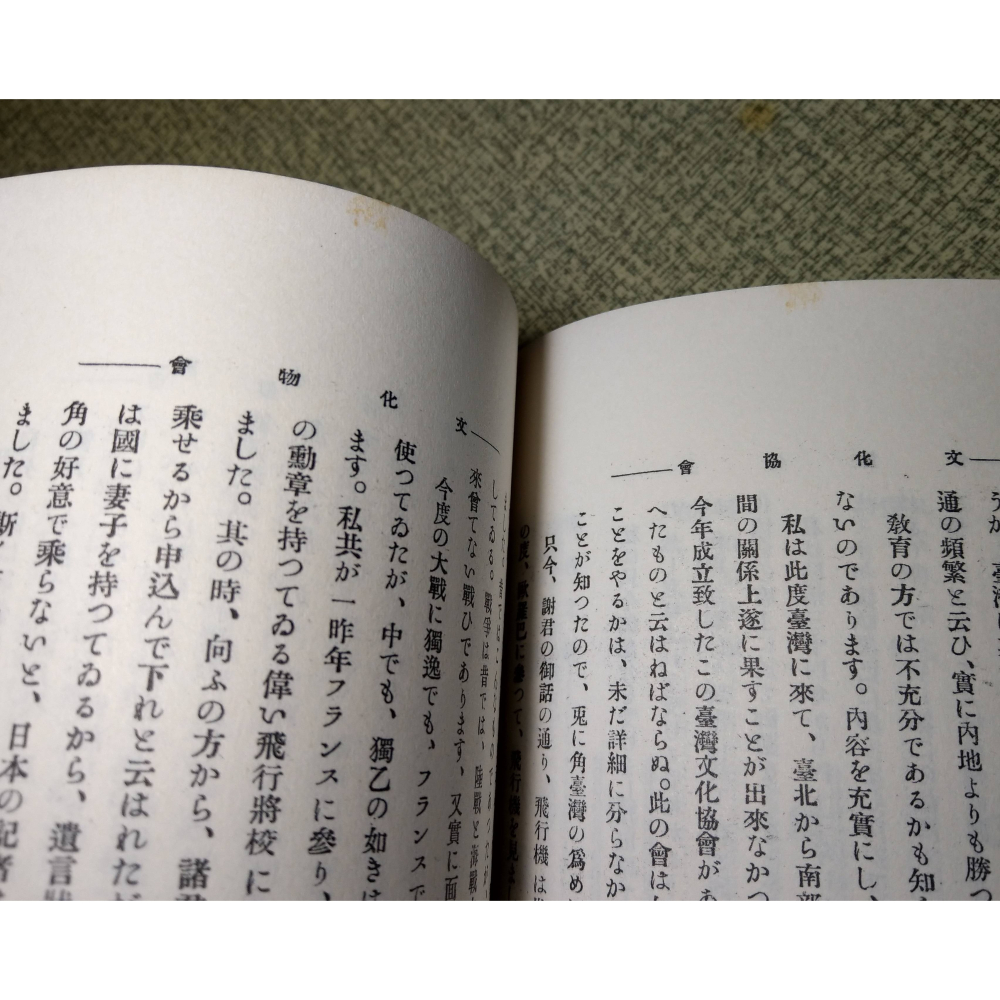 文化協會
通の頻繁と云ひ、實に內地よりも勝つ
敎育の方では不充分であるかも知
ないのであります。內容を充實にし、
私は此度臺灣に來て、臺北から南部
間の關係上遂に果すことが出來なかつ
今年成立致したこの臺灣文化協會があ
へたものと云はねばならぬ。此の會は
ことをやるかは、未だ詳細に分らなか
ことが知つたので、兎に角臺灣の爲め
只今、謝君の御話の通り、飛行機は
の度、歐羅巴に參つて、
文化物會
してゐる。戰爭は昔では、陸戰と海戰
來曾てない戰ひであります、又實に面
今度の大戰に獨逸でも、フランスで
使つてゐたが、中でも、獨乙の如きは
ます。私共が一昨年フランスに參り、
の勳章を持つてゐる偉い飛行將校に
ました。其の時、向ふの方から、諸君
乘せるから申込んで下れと云はれたが
は國に妻子を持つてゐるから、遺言狀
角の好意で乘らないと、日本の記者
ました。斯